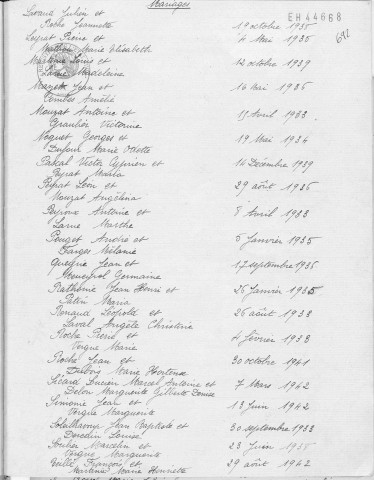 Mariages
EH44668
Livrand Julien et
Roche Jeannette 19 octobre 1935
Leyrat Pierre et 4 Mai 1935
Marie Elisabeth
Louis et 12 octobre 1939
Larue Madeleine
Mazet Jean et 16 mai 1936
Combes Amélie
Mouzat Antoine et 15 Avril 1933
Graulier Victorine
Noguet Georges et 19 Mai 1934
Dufour Marie Odette
Pascal Victor Cyprien et 16 Décembre 1939
Peyrat Maria
Peyrat Léon et 29 août 1936
Mouzat Angélina
Peyroux Antoine et 8 Avril 1933
Larue Marthe
Pouget André et 5 Janvier 1935
Farges Mélanie
Jean et 17 septembre 1936
Germaine
Rathonie Jean Henri et 26 Janvier 1935
Patin Maria
Renaud Léopold et 26 août 1933
Laval Angèle Christine
Roche Pierre et 4 février 1933
Vergne Marie
Roche Jean et 30 octobre 1941
Marie Hortense
Sicard Lucien Marcel Antoine et 7 Mars 1942
Delon Marguerite Gilberte Denise
Simonie Jean et 13 Juin 1942
Vergne Marguerite
Jean Baptiste et 30 septembre 1933
Louise
Soulier Marcelin et 23 Juin 1935
Vergne Marguerite
François et 29 août 1942
Marie Henriette